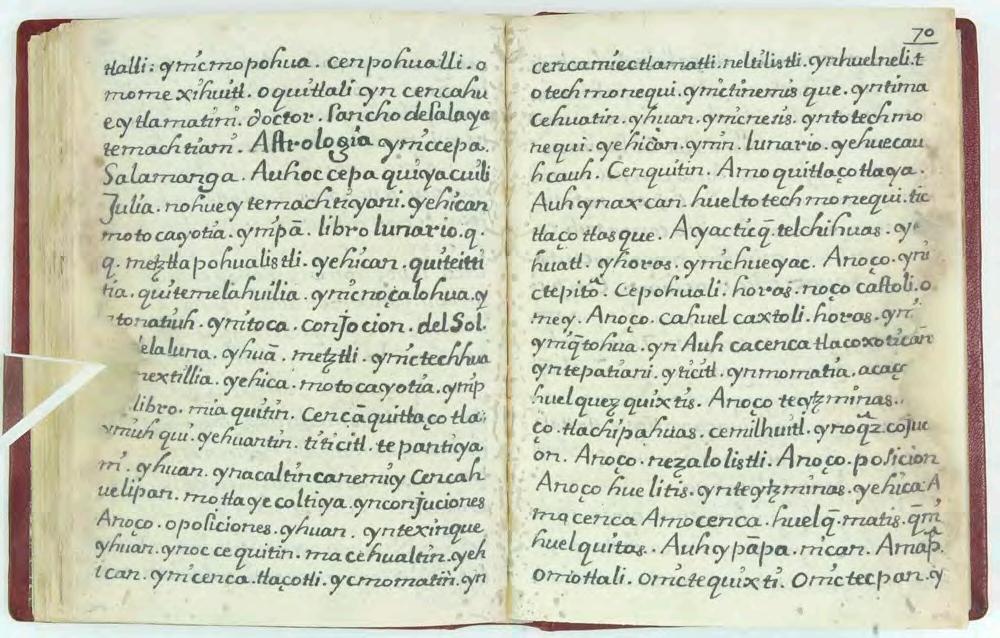 tlalli: ynic mopohua. cenpohualli. o
mome xihuitl. oquitlali yn cencahu
ey tlamatini. doctor. Sancho de salaya
temachtiani. Astrologia ynic cepa.
Salamanga. Auh oc cepa quiyacuili
Julia. no huey temachtiyani. yehican
motocayotia. ynipā. libro lunario. q.
q. metztlapohualistli. yehican. quiteitti
tia. quitemelahuilia. ynic noçalohua. y
tonatiuh. ynitoca. conjocion. del Sol.
elaluna. yhuā. metztli. ynic techhua
nextillia. yehica. motocayotia. ynip
libro. miaquitin. Cencā quitlaçotla:
yniuh qui. yehuantin. titicitl. tepantiya
ni. yhuan. ynacaltin canemiy Cencah
uelipan. motlayecoltiya. yn conjuciones
Anoço. oposiciones. yhuan. yntexinque
yhuan. ynoc cequitin. macehualtin. yeh
ican. ynicenca. tlaçotli. ycmomatin. yn
70
cencamiec tlamatli. neltilistli. ynhuelneli. t
otech monequi. ynictinemis que. yntima
Cehuatin. yhuan. ynicnesis. yntotech mo
nequi. yehicàn. ynin. lunario. yehuecau
hcauh. Cenquitin. Amo quitlaçotlaya.
Auh ynaxcan. huel totech monequi. tic
tlaço tlasque. Ayactic q̄. telchihuas. ye
huatl. yhoras. ynic hueyac. Anoço. yni
ctepitō. Cepohuali. horas. noço castoli. o
mey. Anoço. cahuel caxtoli. horas. yn
ynic q̄tohua. yn Auh cacenca tlaçoxoticān
yntepatiani. yticitl. ynmomatia. acaç
huel quez quixtis. Anoço teytzminas.
ço. tlachipahuas. cemilhuitl. ynoqz. cojuc
on. Anoço. nezalolistli. Anoço. posicion
Anoço huelitis. ynteytzminas. yehica: A
mo cenca Amo cenca. huel q̄. matis. q̄m
huel quitas. Auh ypāpa. nican. Amap.
omotlali. onictequixti. Onictecpan. y